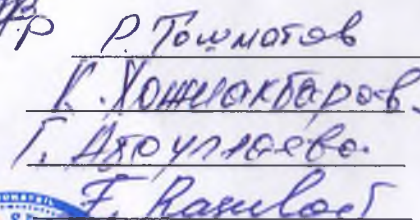 Р. Тошматов
К. Хожиакбаров
Г. Абдуллаева
F. Rasulov